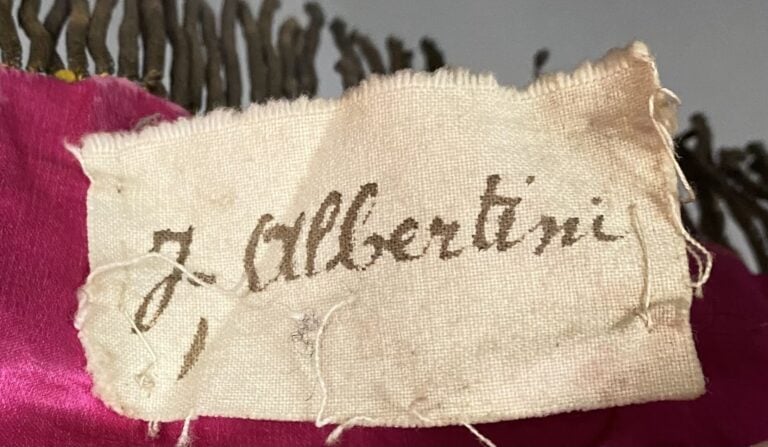 J. Albertini